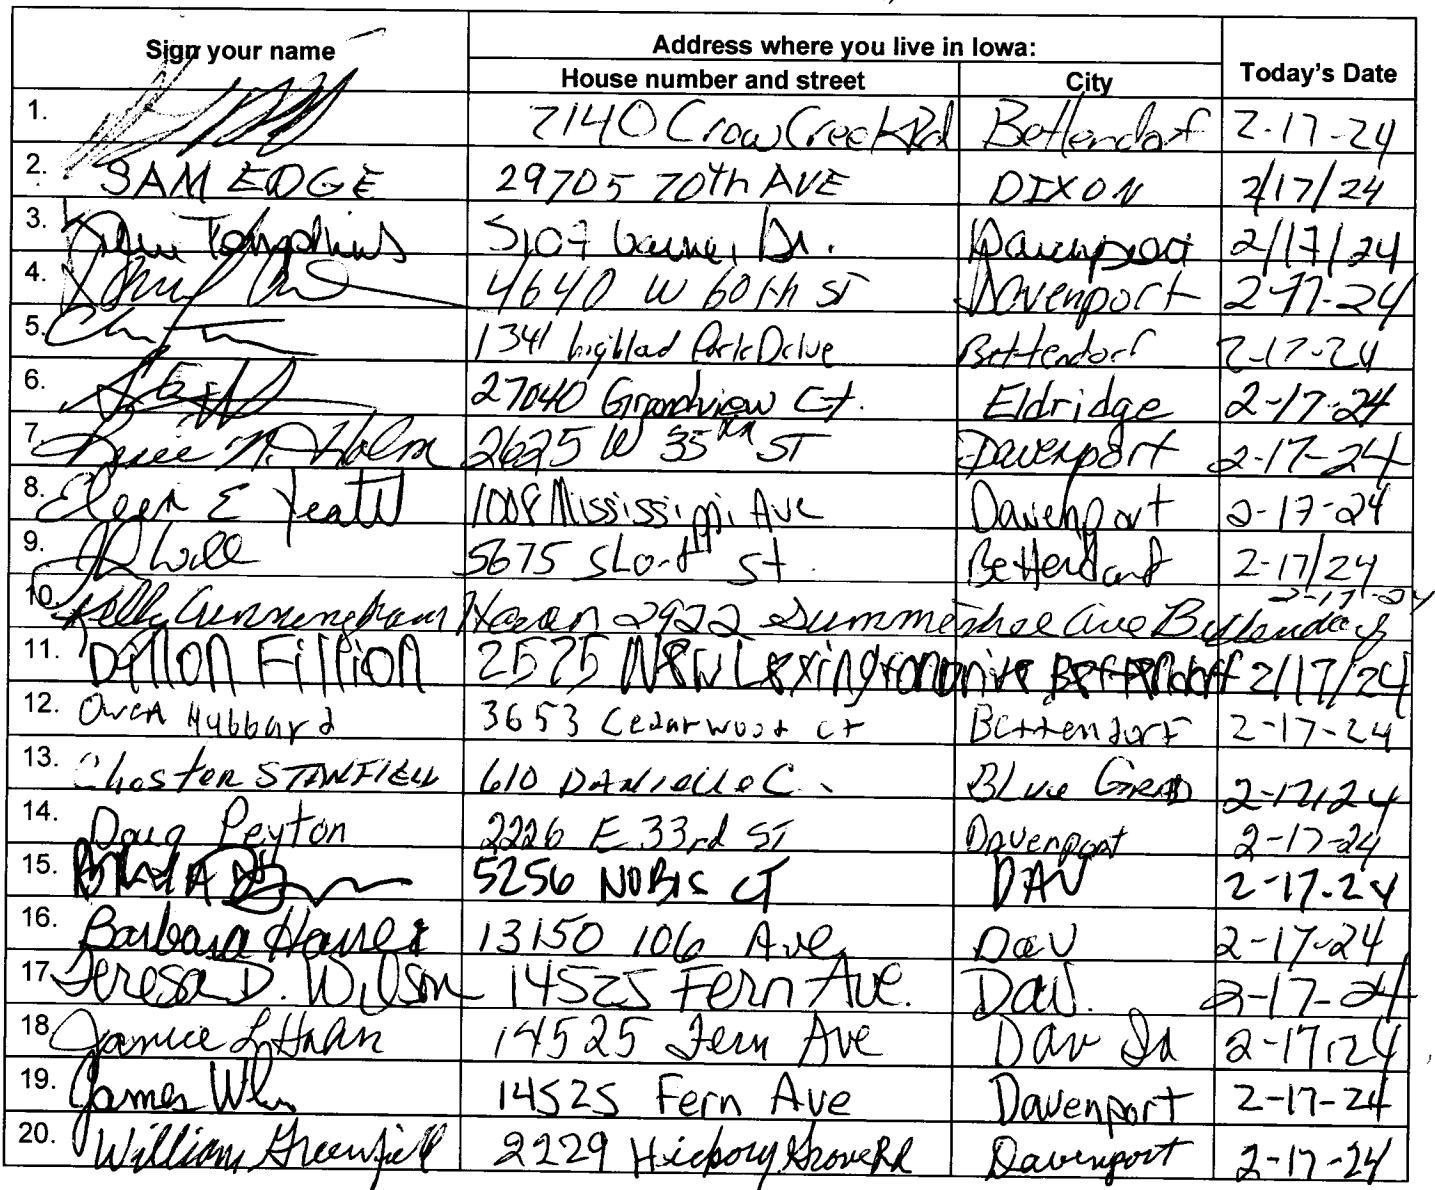 Sign your name Address where you live in Iowa: Today's Date
House number and street City
1. 7140 Crow Creek Rd Bettendorf 2-17-24
2. SAM EDGE 29705 70th AVE DIXON 2/17/24
3. Tompkins 5107 Dr. Davenport 2/17/24
4. 4640 W 60th ST Davenport 2-17-24
5. 1341 highlad Park Drive Bettendorf 2-17-24
6. 27040 Grandview Ct. Eldridge 2-17-24
7. N. Holm 2625 W 35th ST Davenport 2-17-24
8. E 1008 Mississippi Ave Davenport 2-17-24
9. 5675 Short St. Bettendorf 2-17/24
10. Kelly Cunningham Haran 2922 Summertree Ave Bettendorf 2-17-24
11. Dillon Fillion 2575 New Lexington Drive Bettendorf 2/17/24
12. Owen Hubbard 3653 Cedarwood ct Bettendorf 2-17-24
13. STANFIELD 610 DANielle C. BLue GRAD 2-17-24
14. Doug Peyton 2226 E 33rd ST Davenport 2-17-24
15. 5256 NOBIS CT DAV 2-17-24
16. Barbara 13150 106 Ave Dav 2-17-24
17. Teresa D. Wilson 14525 Fern Ave. Dav. 2-17-24
18. Janice L Hahn 14525 Fern Ave Dav Ia 2-17-24
19. James 14525 Fern Ave Davenport 2-17-24
20. William 2229 Hickory Grove Rd Davenport 2-17-24